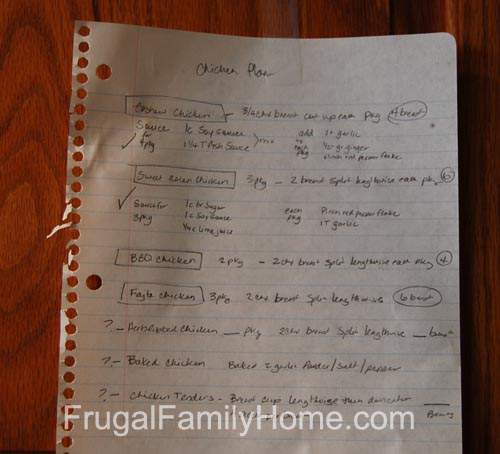 Chicken Plan
Cashew Chicken - 3/4 chx breast cut up each pkg 4 breast
Sauce 1c Soy Sauce add 1t garlic
for 4pkg 1 1/4 T Fish Sauce mix to each pkg 1/2t gr. ginger
red pepper flake
Sweet Asian Chicken 3pkg - 2 breast split lengthwise each pk. 6
Sauce for 1c br Sugar each Pinch red pepper flake
3pkg 1c Soy Sauce pkg 1T garlic
lime juice
BBQ Chicken 2 pkg - 2 chx breast Split lengthwise each pkg 4
Fajita Chicken 3pkg 2 chx breast Split lengthwise 6 breast
?- Chicken pkg 2 chx breast Split lengthwise
?- Baked Chicken Baked garlic Powder/Salt/pepper
?- Chicken Tenders - Breast cup lengthwise then
FrugalFamilyHome.com